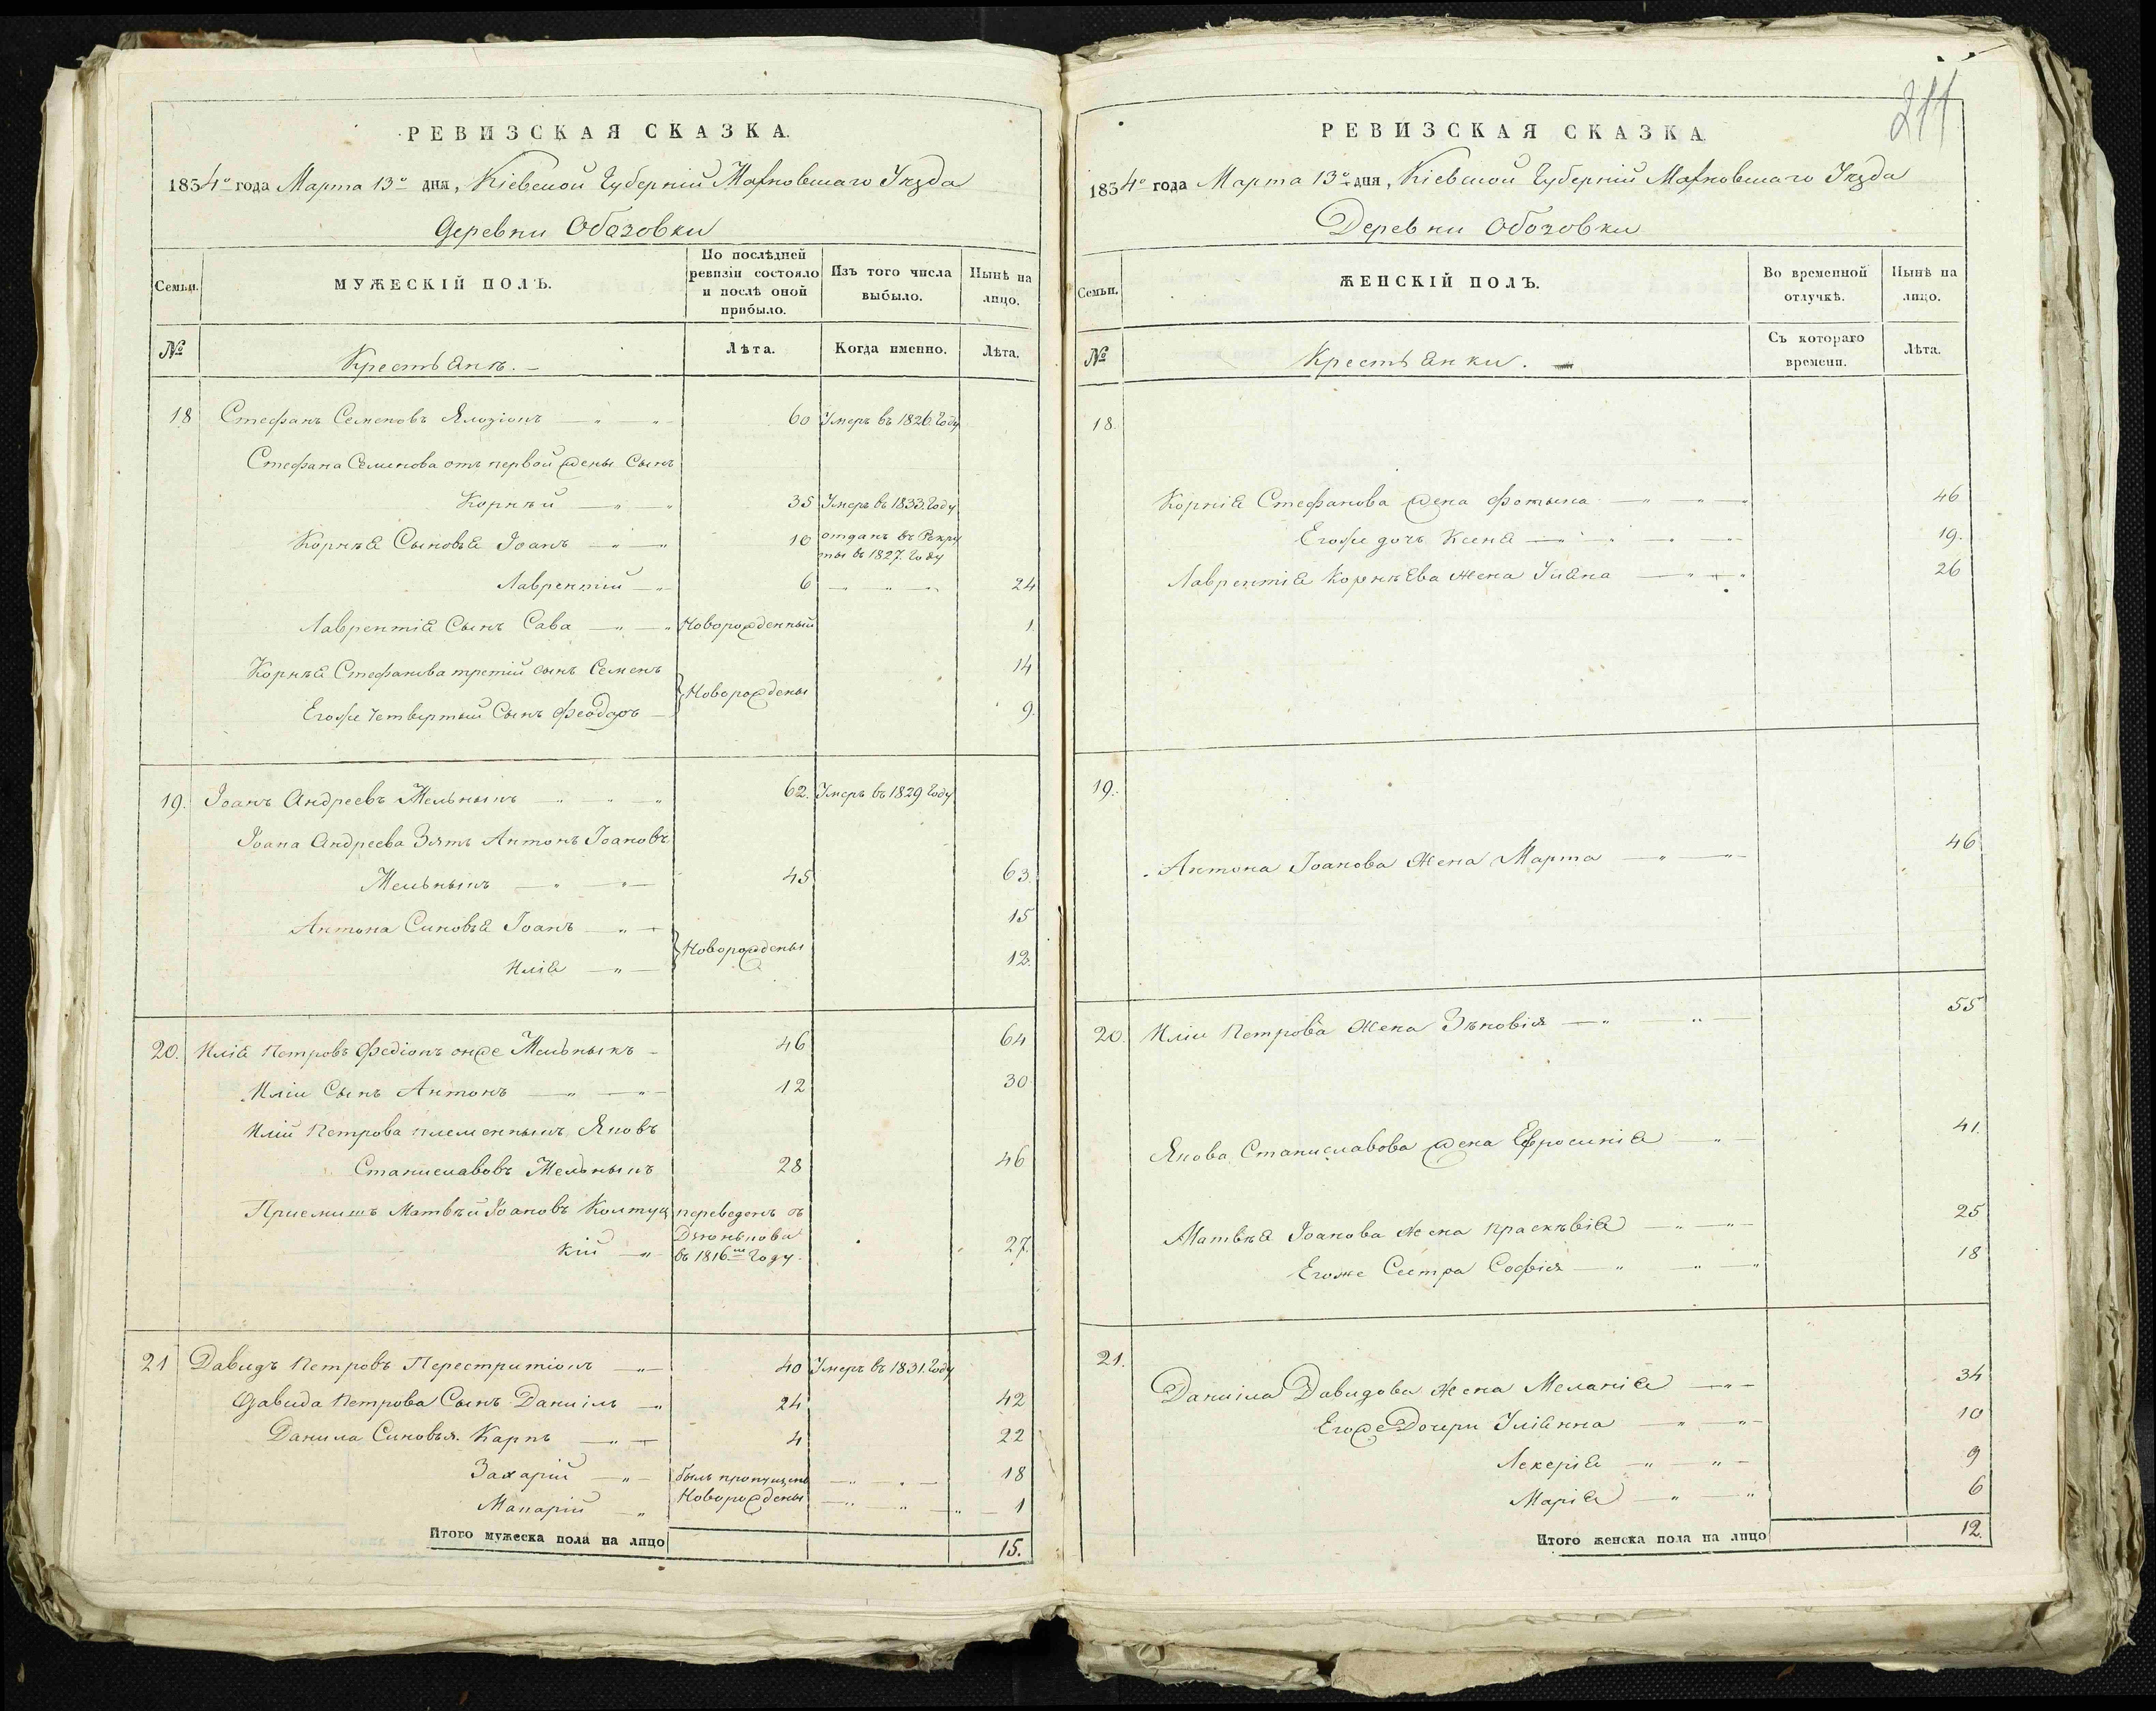 211
РЕВИЗСКАЯ СКАЗКА.
1834го года Марта 13го дня, Кіевской Губерніи Махновскаго Уѣзда
Деревни Обозовки
Семьи.
МУЖЕСКІЙ ПОЛЪ.
По послѣдней ревизіи состояло и послѣ оной прибыло.
Изъ того числа выбыло.
Нынѣ на лицо.
№
Крестьянъ.
Лѣта.
Когда именно.
Лѣта.
18 Стефанъ Семеновъ 60 Умеръ въ 1826. Году
Стефана Семенова отъ первой жены Сынъ
Корнѣй 35 Умеръ въ 1833. Году
Корнѣя Сыновья Іоанъ 10 отданъ въ Рекру
ты въ 1827. Году
Лаврентій 6 24
Лаврентія Сынъ Сава Новорожденный 1
Корнѣя Стефанова третій сынъ Семенъ 14
Новорождены
Егоже Четвертый Сынъ Феодоръ 9.
19. Іоанъ Андреевъ Мельныкъ 62. Умеръ въ 1829 Году
Іоана Андреева Зять Антонъ Іоановъ
Мельныкъ 45 63.
Антона Сыновья Іоанъ 15
Новорождены
Илія 12.
20. Илія Петровъ Федіонъ онже Мельныкъ 46 64
Иліи Сынъ Антонъ 12 30
Иліи Петрова племенныкъ Яковъ
Станиславовъ Мельныкъ 28 46
Приемишъ Матвѣй Іоановъ Колтуц переведенъ съ
кій въ 1816м Году. 27.
21 Давидъ Петровъ 40 Умеръ въ 1831. Году
Давида Петрова Сынъ Даниілъ 24 42
Данила Синовья. Карпъ 4 22
Захарій былъ пропущенъ 18
Макарій Новорождены 1
Итого мужеска пола на лицо 15.
РЕВИЗСКАЯ СКАЗКА
1834го года Марта 13го дня, Кіевской Губерніи Махновскаго Уѣзда
Деревни Обозовки
Семьи.
ЖЕНСКІЙ ПОЛЪ.
Во временной отлучкѣ.
Нынѣ на лицо.
№
Крестьянки.
Съ котораго времени.
Лѣта.
18.
Корнія Стефанова жена Фотына 46
Егоже дочь Ксеня 19.
Лаврентія Корнѣева жена Уляна 26
19.
Антона Іоанова жена Марта 46
20. Иліи Петрова жена Зѣновія 55
Якова Станиславова жена Ефросинія 41.
Матвѣя Іоанова жена Праскѣвія 25
Егоже Сестра Софія 18
21.
Даниіла Давидова жена Меланія 34
Егоже Дочери Уліянна 10
Лекерія 9
Марія 6
Итого женска пола на лицо 12.